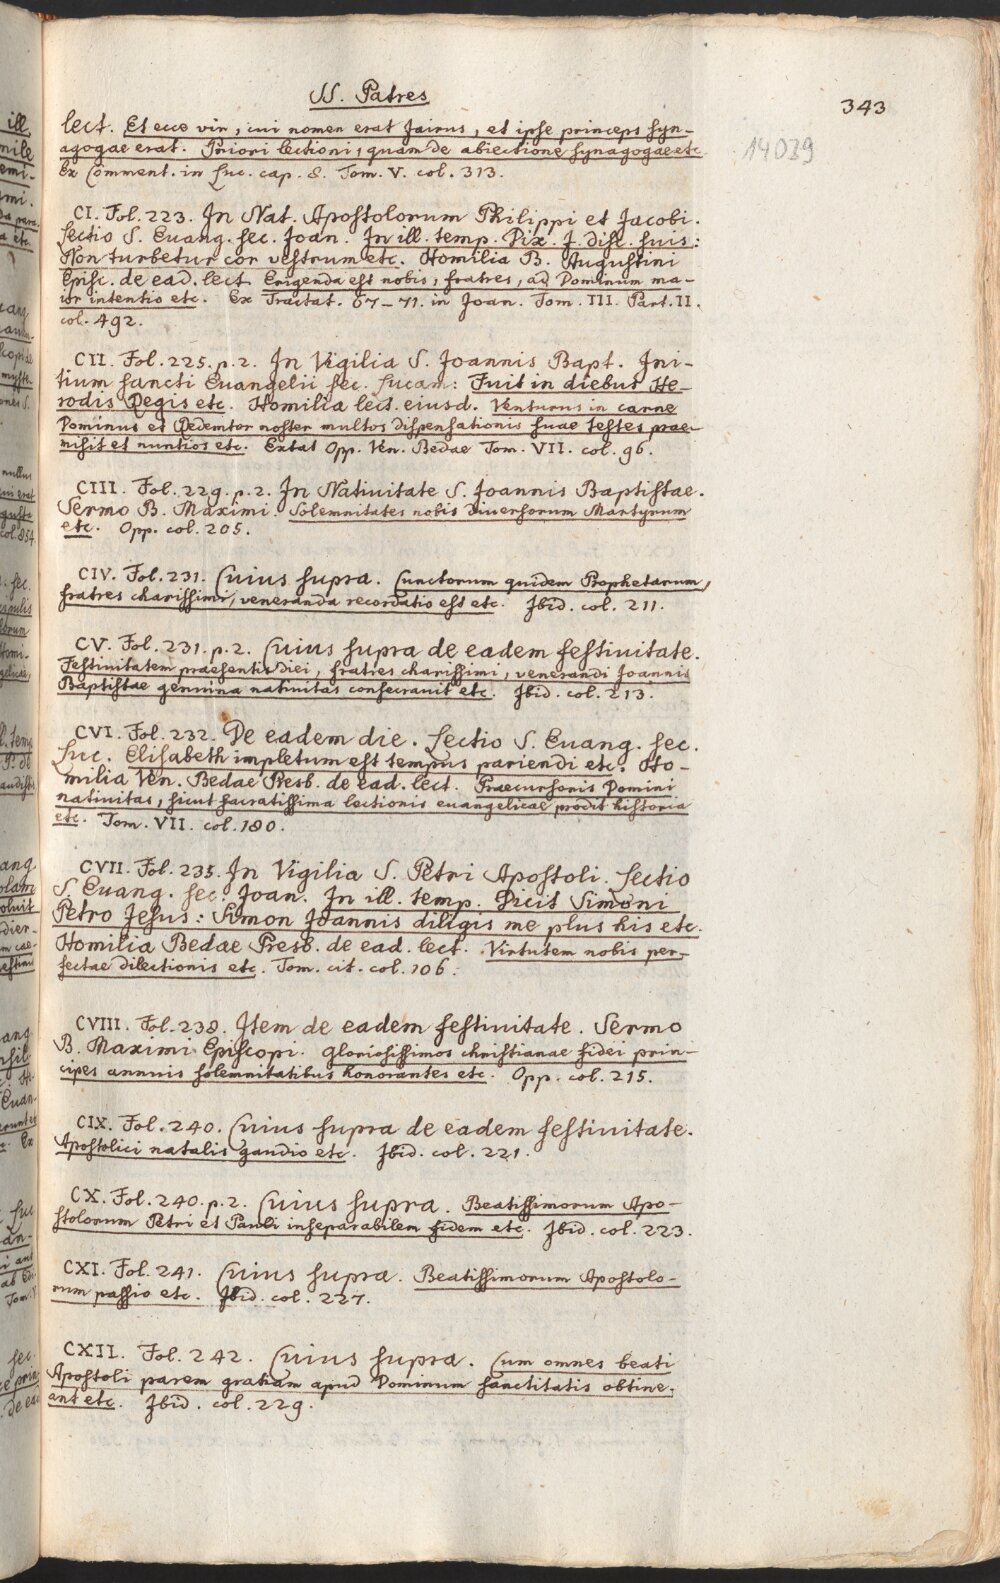 SS. Patres
343
14039
lect. Et ecce vir, cui nomen erat Jairus, et ipse princeps syn-
agogae erat. Priori lectioni, quam de abiectione synagogae etc
Ex Comment. in Luc. cap. 8. Tom. V. col. 313.
CI. Fol. 223. In Nat. Apostolorum Philippi et Jacobi.
Lectio S. Euang. sec. Joan. In ill. temp. Dix. J. disc. suis:
Non turbetur cor vestrum etc. Homilia B. Augustini
Episc. de ead. lect. Erigenda est nobis, fratres, ad Dominum ma-
ior intentio etc. Ex Tractat. 67-71. in Joan. Tom. III. Part. II.
col. 492.
CII. Fol. 225. p. 2. In Vigilia S. Joannis Bapt. Ini-
tium sancti Euangelii sec. Lucam: Fuit in diebus He-
rodis Regis etc. Homilia lect. eiusd. Venturus in carne
Dominus et Redemtor noster multos dispensationis suae testes prae-
misit et nuntios etc. Extat Opp. Ven. Bedae Tom. VII. col. 96.
CIII. Fol. 229. p. 2. In Natiuitate S. Joannis Baptistae.
Sermo B. Maximi. Solemnitates nobis diuersorum Martyrum
etc. Opp. col. 205.
CIV. Fol. 231. Cuius supra. Cunctorum quidem Prophetarum,
fratres charissimi, veneranda recordatio est etc. Ibid. col. 211.
CV. Fol. 231. p. 2. Cuius supra de eadem festiuitate.
Festiuitatem praesentis diei, fratres charissimi, venerandi Joannis
Baptistae genuina natiuitas consecrauit etc. Ibid. col. 213.
CVI. Fol. 232. De eadem die. Lectio S. Euang. sec.
Luc. Elisabeth impletum est tempus pariendi etc. Ho-
milia Ven. Bedae Presb. de ead. lect. Praecursoris Domini
natiuitas, sicut sacratissima lectionis euangelicae prodit historia
etc. Tom. VII. col. 180.
CVII. Fol. 235. In Vigilia S. Petri Apostoli. Lectio
S. Euang. sec. Joan. In ill. temp. Dicit Simoni
Petro Jesus: Simon Joannis diligis me plus his etc.
Homilia Bedae Presb. de ead. lect. Virtutem nobis per-
fectae dilectionis etc. Tom. cit. col. 106.
CVIII. Fol. 238. Item de eadem festiuitate. Sermo
B. Maximi Episcopi. Gloriosissimos christianae fidei prin-
cipes annuis solemnitatibus honorantes etc. Opp. col. 215.
CIX. Fol. 240. Cuius supra de eadem festiuitate.
Apostolici natalis gaudio etc. Ibid. col. 221.
CX. Fol. 240. p. 2. Cuius supra. Beatissimorum Apo-
stolorum Petri et Pauli inseparabilem fidem etc. Ibid. col. 223.
CXI. Fol. 241. Cuius supra. Beatissimorum Apostolo-
rum passio etc. Ibid. col. 227.
CXII. Fol. 242. Cuius supra. Cum omnes beati
Apostoli parem gratiam apud Dominum sanctitatis obtine-
ant etc. Ibid. col. 229.